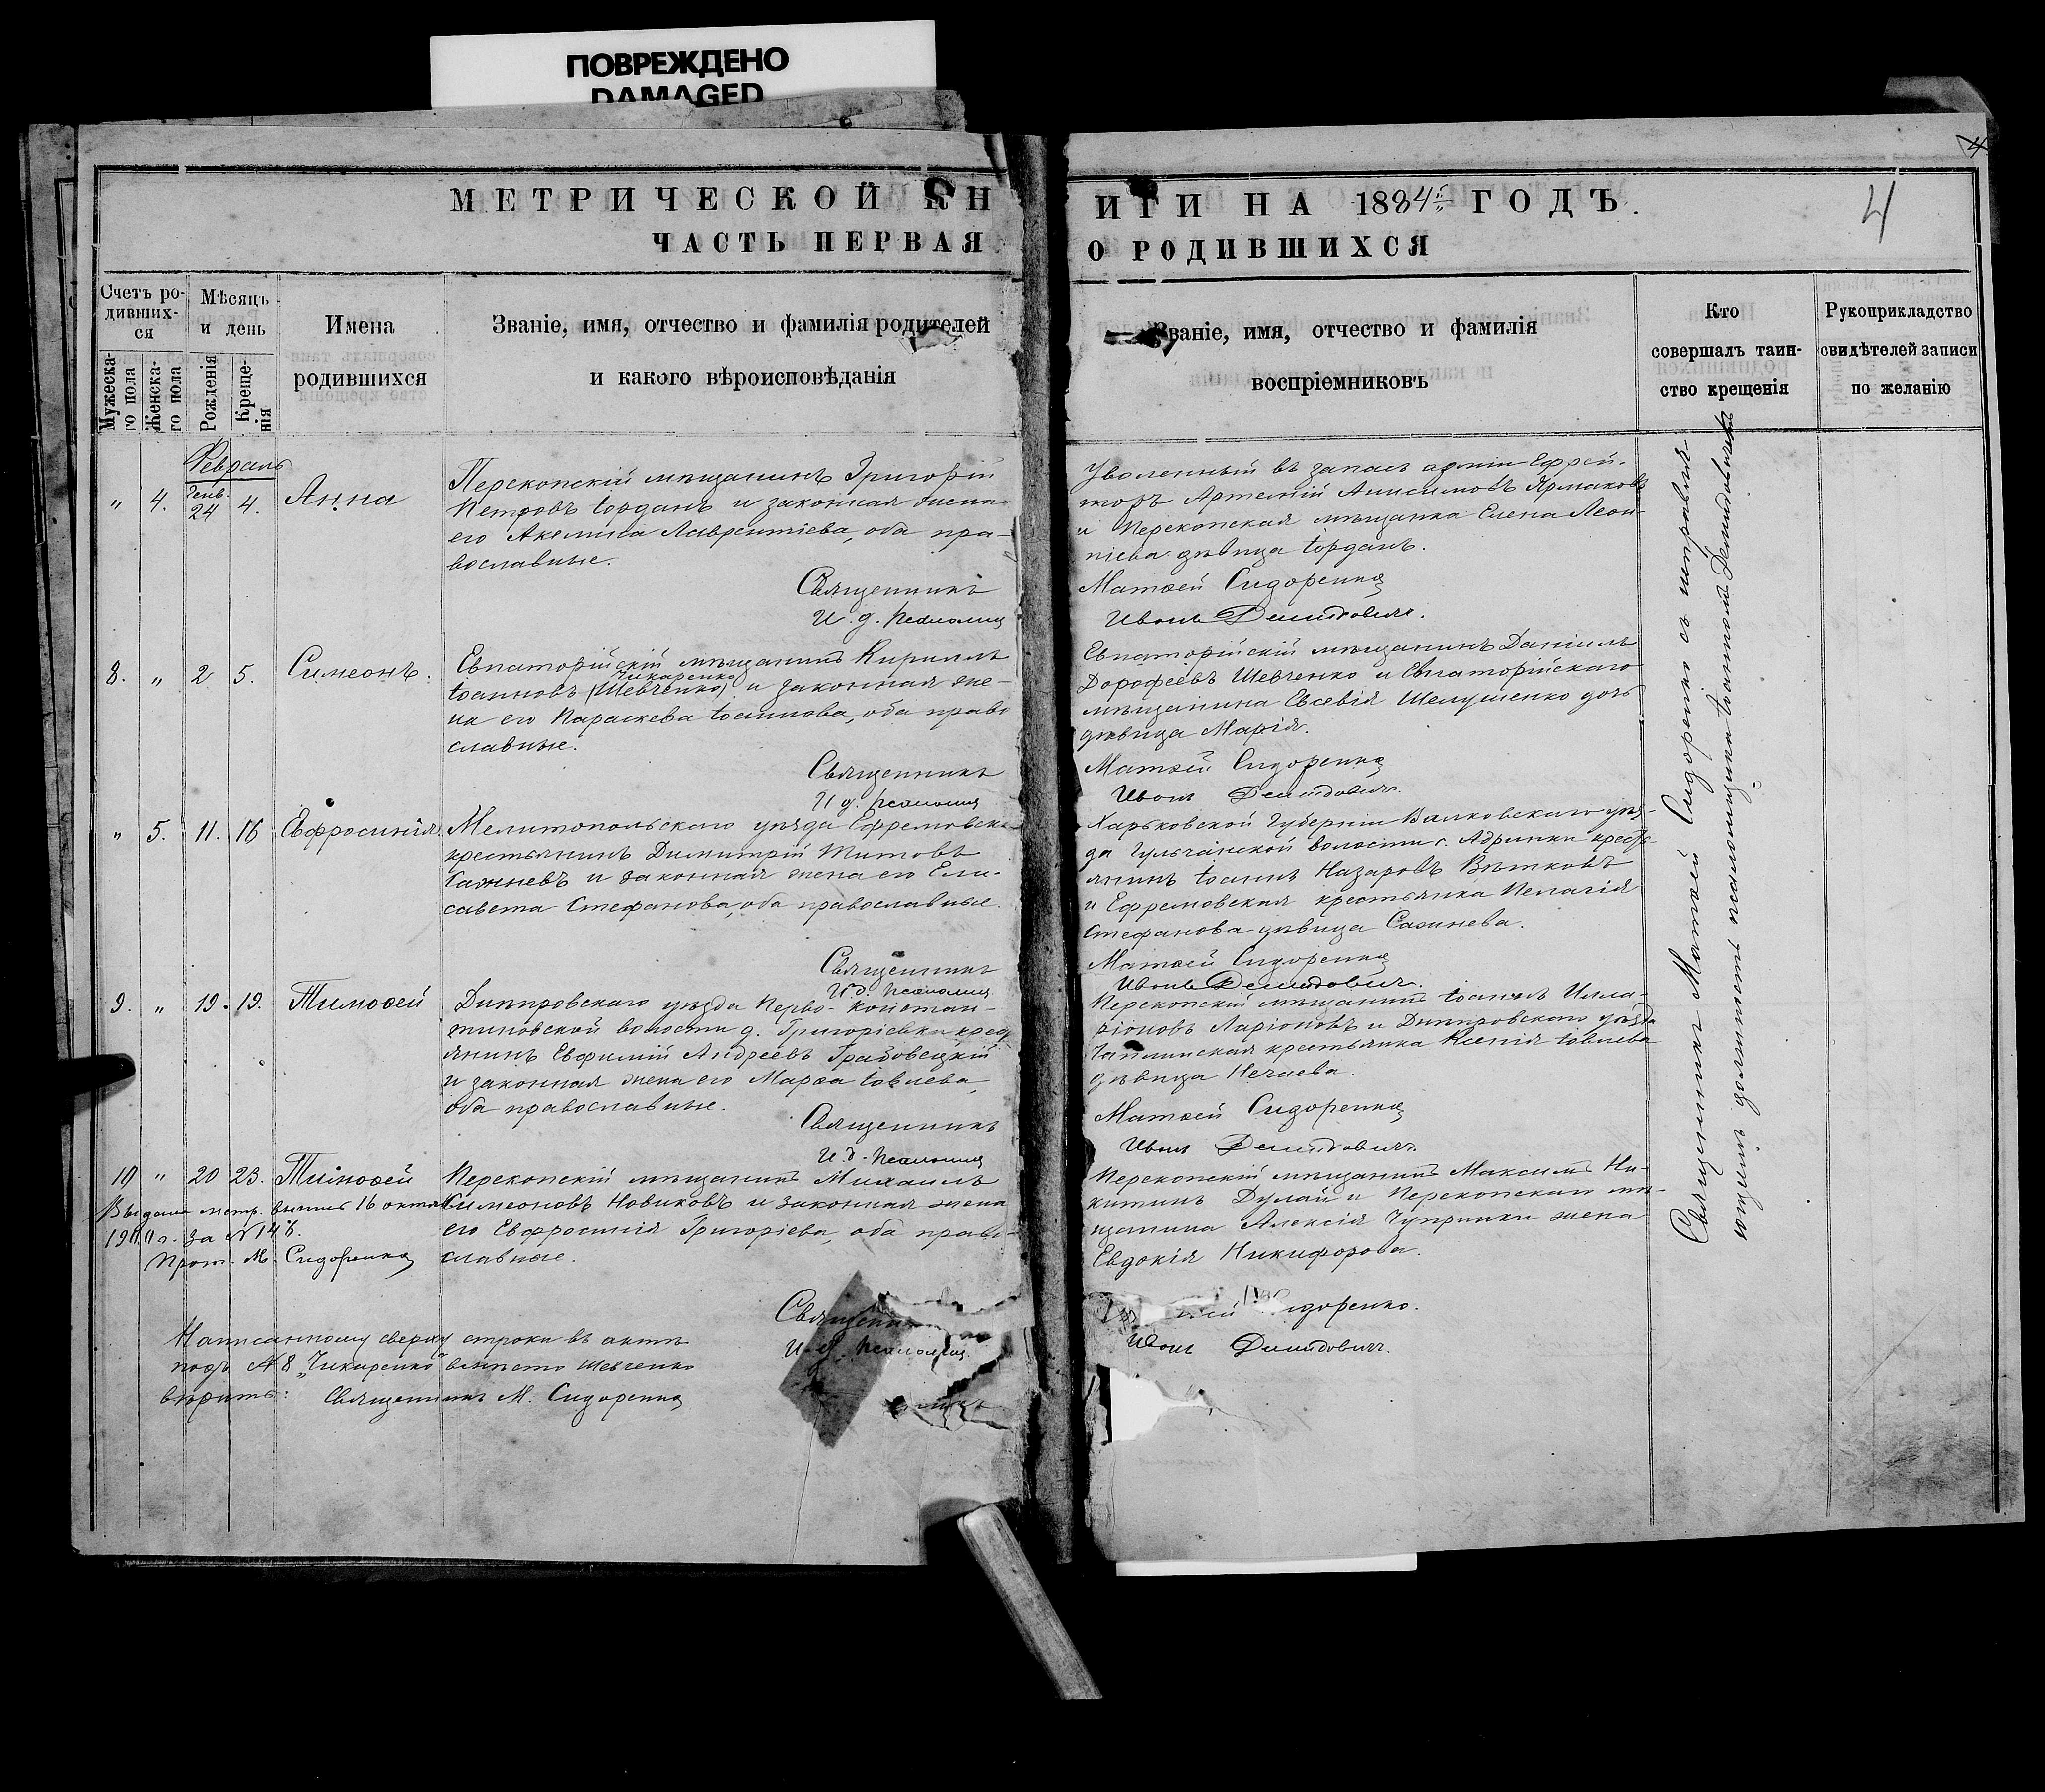 ПОВРЕЖДЕНО
DAMAGED
МЕТРИЧЕСКОЙ КН
ИГИ НА 1884 ГОДЪ.
4
ЧАСТЬ ПЕРВАЯ
О РОДИВШИХСЯ
Счетъ ро-
дивших-
ся
Мужеска-
го пола
Женска-
го пола
Мѣсяцъ
и день
Рожденія
Креще-
нія
Имена
родившихся
Званіе, имя, отчество и фамилія родителей
и какого вѣроисповѣданія
Званіе, имя, отчество и фамилія
воспріемниковъ
Кто
совершалъ таин-
ство крещенія
Рукоприкладство
свидѣтелей записи
по желанію
Февраль
" 4. Генв. 24 4. Анна
Перекопскій мѣщанинъ Григорій
Петровъ Іорданъ и законная жена
его Акелина Лаврентіева, оба пра-
вославные.
Священникъ
И. д. псаломщ
Уволенный въ запасъ арміи Ефрей-
торъ Артемій Анисимовъ Ярмаковъ
и Перекопская мѣщанка Елена Леон-
тіева дѣвица Іорданъ.
Матѳей Сидоренко
Иванъ Демидовичъ.
8. " 2 5. Симеонъ.
Евпаторійскій мѣщанинъ Кириллъ
Чикаренко
Іоанновъ (Шевченко) и законная же-
на его Параскева Іоаннова, оба право
славные.
Священникъ
И д. псаломщ
Евпаторійскій мѣщанинъ Даніилъ
Дорофеевъ Шевченко и Евпаторійскаго
мѣщанина Евсевія Шелушенко дочь
дѣвица Марія.
Матѳей Сидоренко
Иванъ Демидовичъ.
" 5. 11. 16 Евфросинія
Мелитопольскаго уѣзда Ефремовск
крестьянинъ Димитрій Титовъ
Сажневъ и законная жена его Ели-
савета Стефанова, оба православные.
Священникъ
И. д. псаломщ
Харьковской Губерніи Валковскаго уѣз-
да волости с. Адринки кресть
янинъ Іоаннъ Назаровъ Вѣтковъ
и Ефремовская крестьянка Пелагія
Стефанова дѣвица Сажнева.
Матѳей Сидоренко
Иванъ Демидовичъ.
9. " 19. 19. Тимоѳей
Днѣпровскаго уѣзда Перво-констан-
тиновской волости д. Григорьевки крест
янинъ Евфимій Андреевъ Грабовецкій
и законная жена его Марѳа Іовлева,
оба православные.
Священникъ
И. д. псаломщ
Перекопскій мѣщанинъ Іоаннъ Илла-
ріоновъ Ларіоновъ и Днѣпровскаго уѣзда
Чаплинская крестьянка Ксенія Іовлева
дѣвица Нечаева.
Матѳей Сидоренко
Иванъ Демидовичъ.
10 " 20 23. Тимоѳей
Перекопскій мѣщанинъ Михаилъ
Симеоновъ Новиковъ и законная жена
его Евфросинія Григоріева, оба право-
славные.
Выдана метр. выпись 16 октяб
за № 148.
Прот. М. Сидоренко
Перекопскій мѣщанинъ Максимъ Ни-
китинъ Дулай и Перекопскаго мѣ-
щанина Алексія Чупринки жена
Евдокія Никифорова.
Священник
И. д. псаломщ.
ѳей Сидоренко.
Иванъ Демидовичъ.
Написанному сверху строки въ актѣ
подъ № 8 „Чикаренко" вмѣсто Шевченко
вѣрить: Священникъ М. Сидоренко
Священникъ Матѳей Сидоренко съ исправля-
ющимъ должность псаломщика Іоанномъ Демидовичемъ